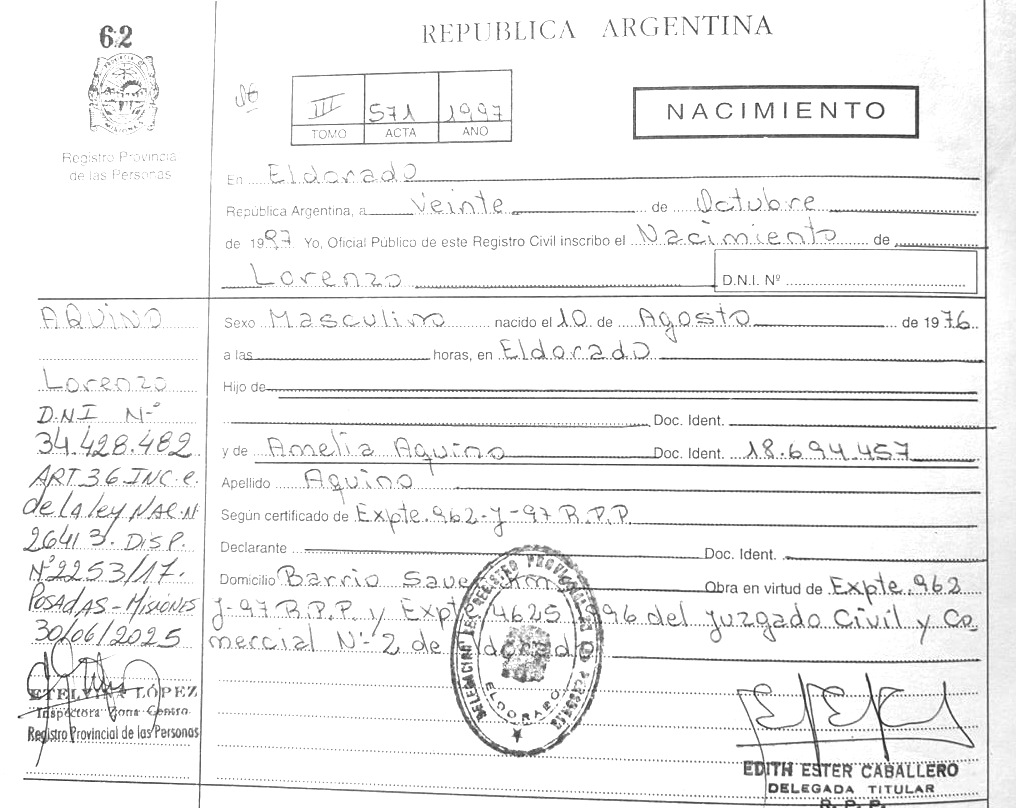 62
REPUBLICA ARGENTINA
III 571 1997
TOMO ACTA AÑO
NACIMIENTO
Registro Provincial
de las Personas
En Eldorado
República Argentina, a Veinte de Octubre
de 1997 Yo, Oficial Público de este Registro Civil inscribo el Nacimiento de
Lorenzo D.N.I. Nº
Sexo Masculino nacido el 10 de Agosto de 1976
a las horas, en Eldorado
Hijo de
Doc. Ident.
y de Amelia Aquino Doc. Ident. 18.694.457
Apellido Aquino
Según certificado de Expte. 962-J-97 R.P.P.
Declarante Doc. Ident.
Domicilio Barrio Km Obra en virtud de Expte. 962
J-97 R.P.P. y Expte 4625 1996 del Juzgado Civil y Co
mercial Nº 2 de Eldorado
AQUINO
Lorenzo
D.N.I Nº
34.428.482
ART 36 INC. e.
de LA ley NAC.N
26413. DISP.
Nº2253/17.
POSADAS - MISIONES
30/06/2025
ETELVINA LÓPEZ
Inspectora Zona Centro
Registro Provincial de las Personas
ELDORADO
EDITH ESTER CABALLERO
DELEGADA TITULAR
R. P. P.